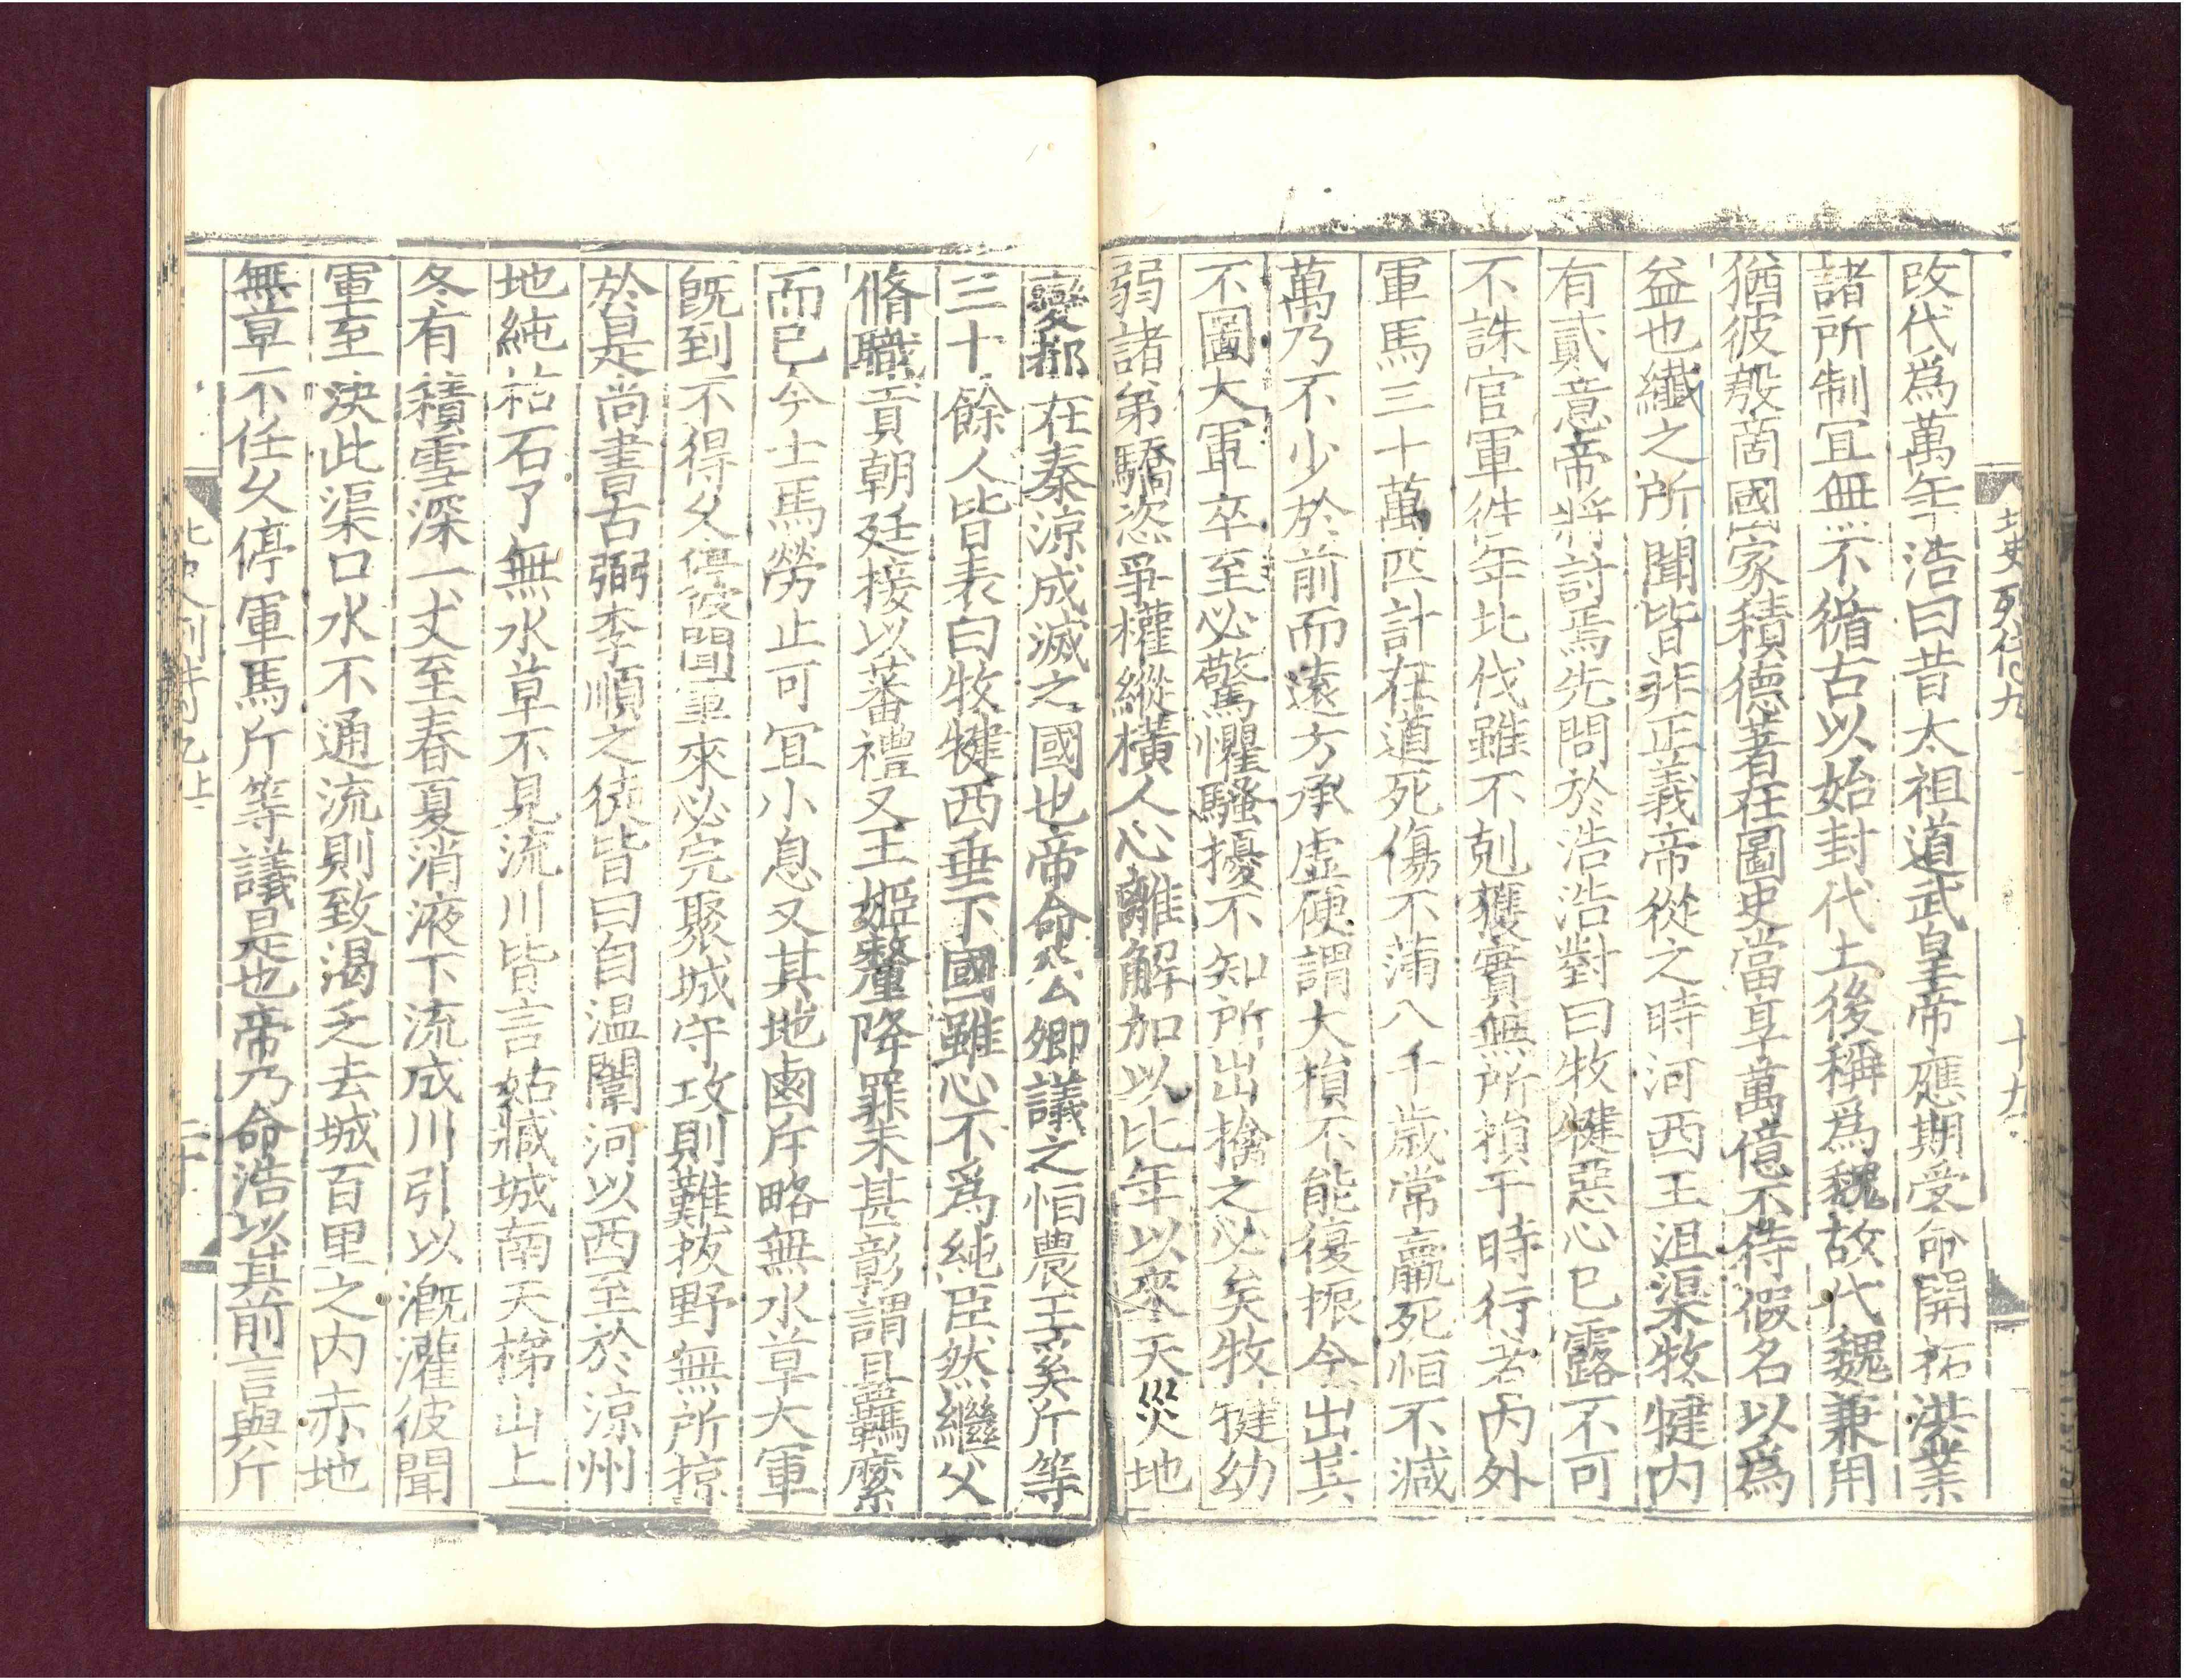 北史列傳九
十九
改代爲萬年浩曰昔太祖道武皇帝應期受命開拓洪業
諸所制宜無不循古以始封代土後稱爲魏故代魏兼用
猶彼殷商國家積德著在圖史當享萬億不待假名以爲
益也纎之所聞皆非正義帝從之時河西王沮渠牧犍内
有貳意帝將討焉先問於浩浩對曰牧犍惡心已露不可
不誅官軍往年北伐雖不剋獲實無所損于時行者内外
軍馬三十萬匹計在道死傷不滿八千歲常羸死恒不減
萬乃不少於前而遠方承虛便謂大損不能復振今出其
不圖大軍卒至必驚懼騷擾不知所出擒之必矣牧犍幼
弱諸弟驕恣爭權縱橫人心離解加以比年以來天災地
變都在秦涼成滅之國也帝命公卿議之恒農王奚斤等
三十餘人皆表曰牧犍西垂下國雖心不爲純臣然繼父
脩職貢朝廷接以蕃禮又王姬釐降罪未甚彰謂且羈縻
而已今士馬勞止可宜小息又其地鹵斥略無水草大軍
旣到不得久停彼聞軍來必完聚城守攻則難拔野無所掠
於是尚書古弼李順之徒皆曰自温闈河以西至於涼州
地純枯石了無水草不見流川皆言姑臧城南天梯山上
冬有積雪深一丈至春夏消液下流成川引以漑灌彼聞
軍至決此渠口水不通流則致渴乏去城百里之内赤地
無草不任久停軍馬斤等議是也帝乃命浩以其前言與斤
北史列傳九上
二十